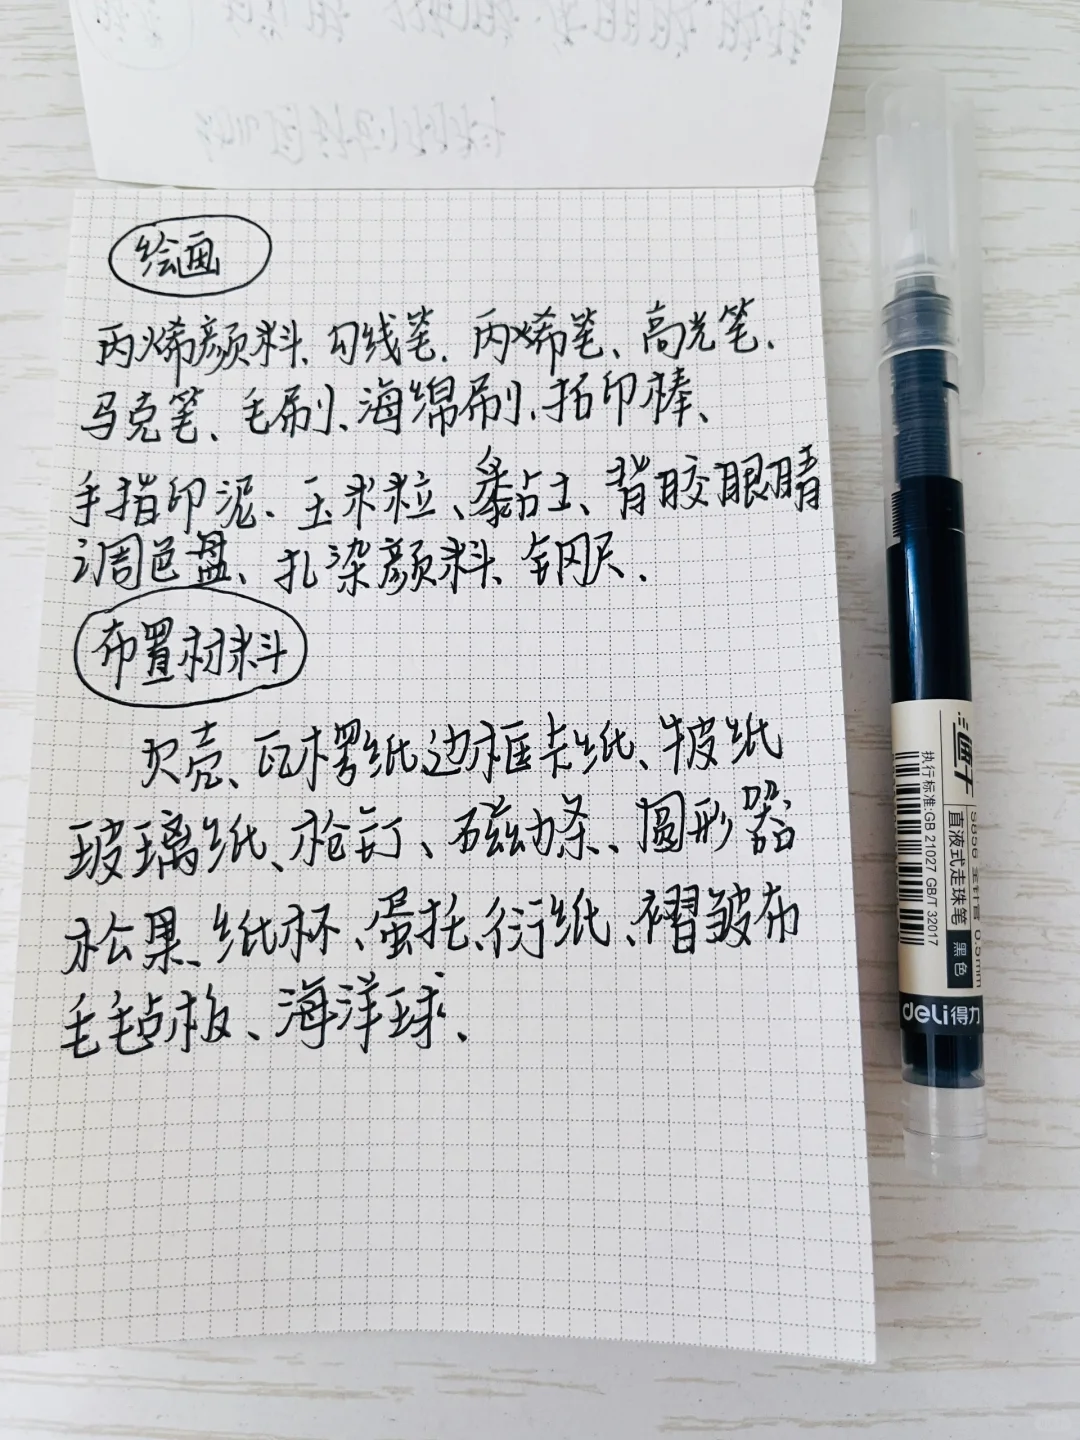 绘画
丙烯颜料、勾线笔、丙烯笔、高光笔、
马克笔、毛刷、海绵刷、拓印棒、
手指印泥、玉米粒、黏土、背胶眼睛
调色盘、扎染颜料、钢尺、
布置材料
贝壳、瓦楞纸边框卡纸、牛皮纸
玻璃纸、枪钉、磁力条、圆形器
松果、纸杯、蛋托、衍纸、褶皱布
毛毡板、海洋球、
直液式走珠笔 黑色
执行标准/GB 21027 GB/T 32017
S856 全针管 0.5mm
deli得力